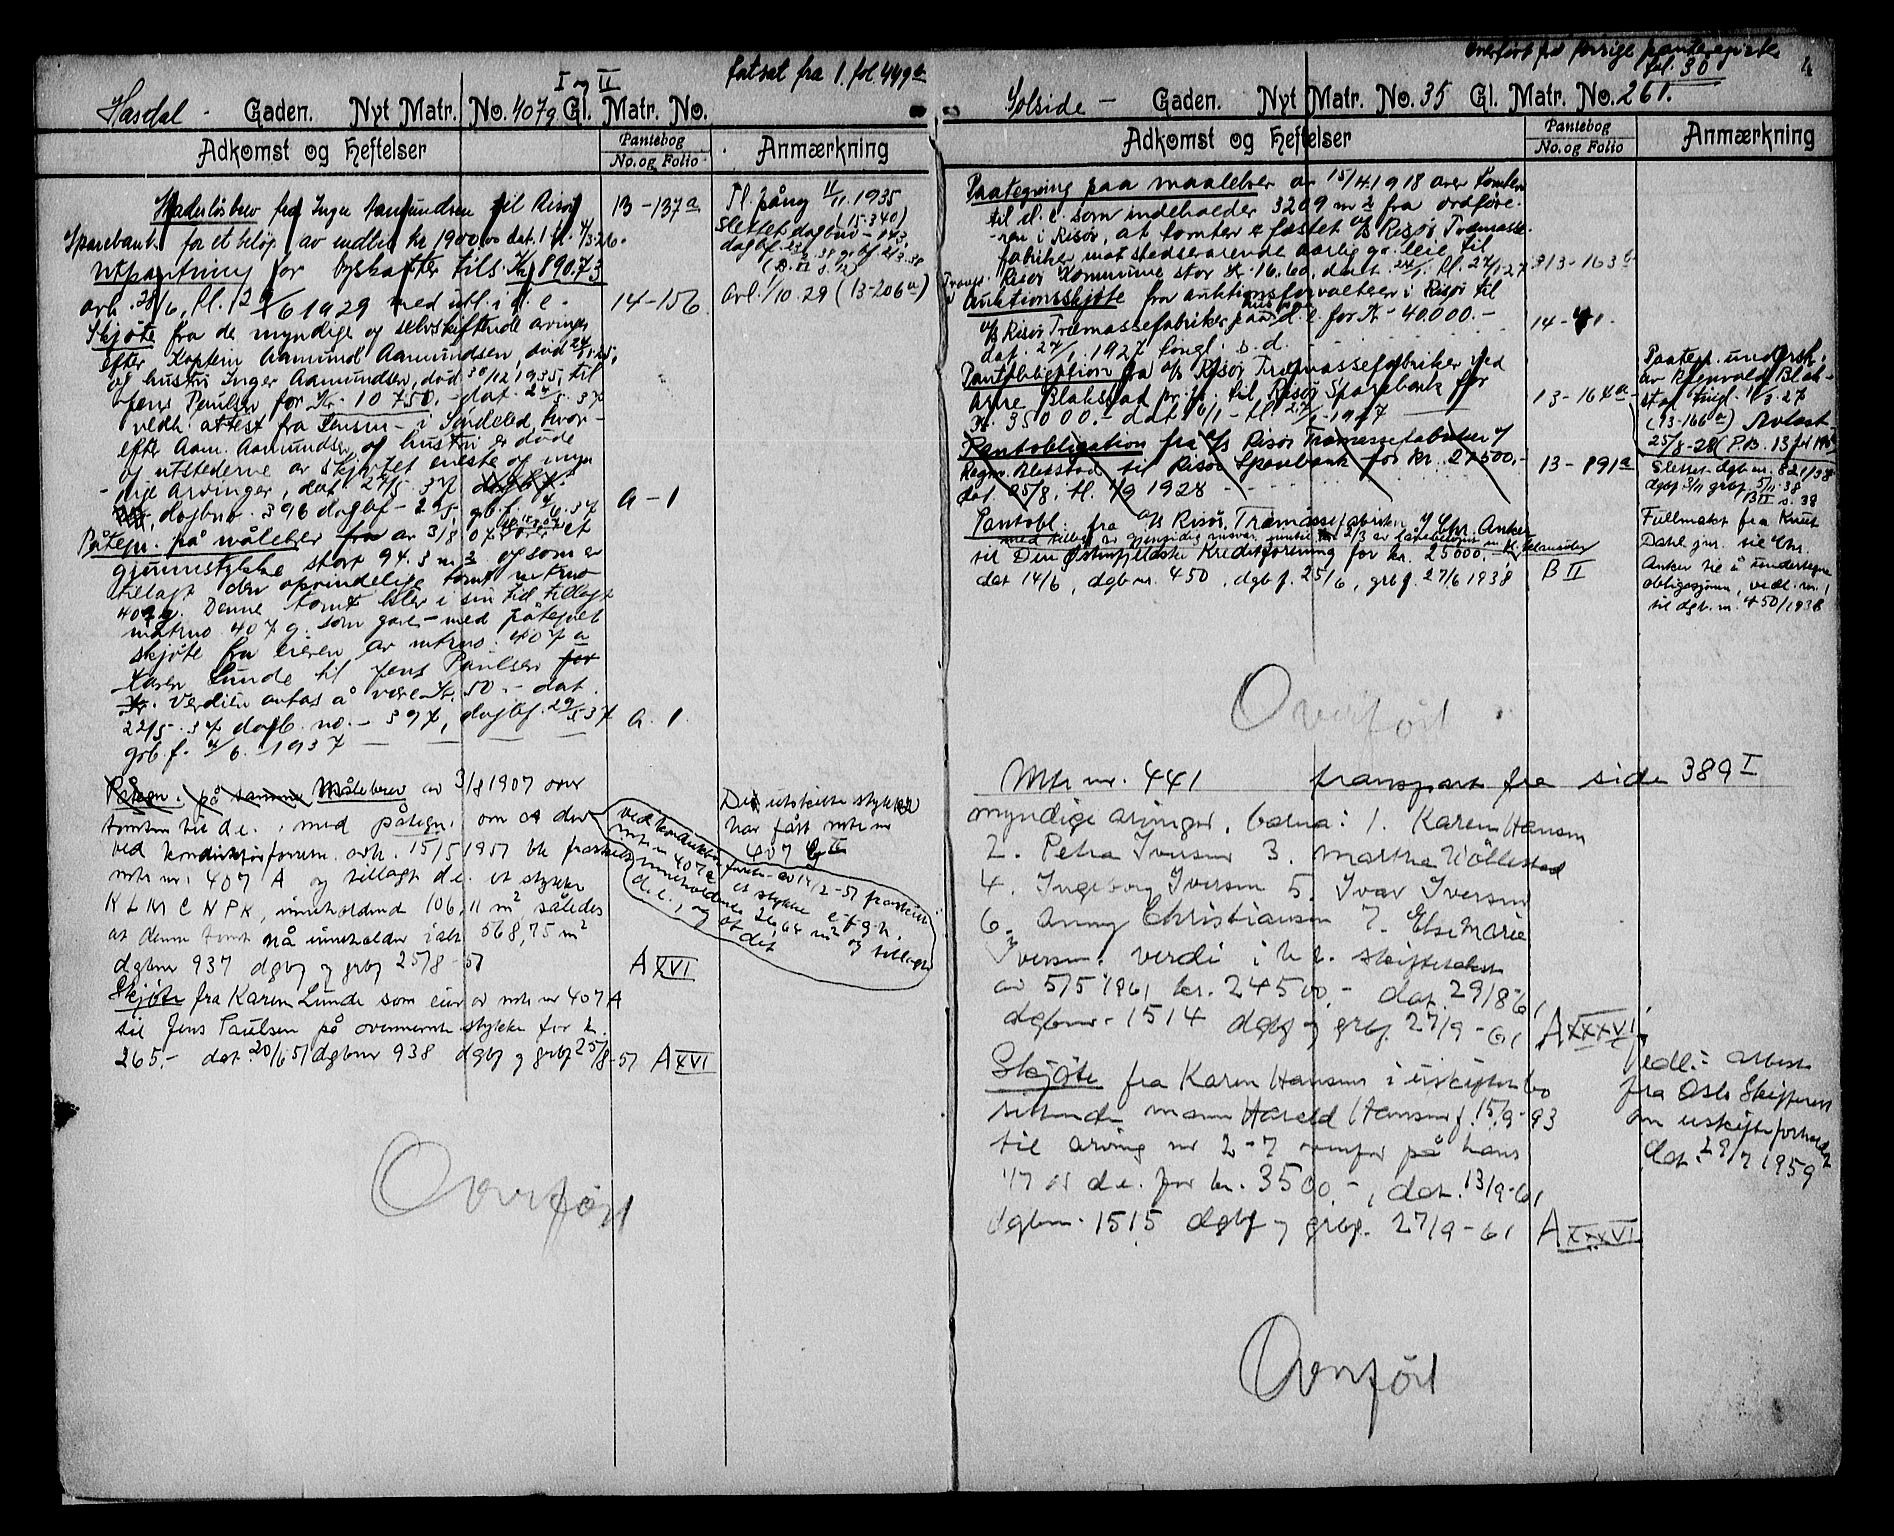 I og II
fortsat fra 1. fol 449a
Hasdal - Gaden. Nyt Matr. No. 407g Gl. Matr. No.
Adkomst og Heftelser
Pantebog
No. og Folio
Anmærkning
Skadesløsbrev fra Inger Aamundsen til Risør
Sparebank for et beløp av indtil kr 1900.00 dat. 1 tl. 4/3-26.
13-137a
Pl. påny 11/11. 1935
(15-340)
Slettet dagbno - 143,
Utpantning for byskatter tils. Kr 890.73
avh. 28/6, tl. 29/6 1929 med utl. i d. e.
14-156
Avl. 1/10-29 (13-206a)
Skjøte fra de myndige og selvskiftende arvinger
efter Kaptein Aamund Aamundsen, død
og hustru Inger Aamundsen, død 30/12 1935, til
Jens Paulsen for Kr. 10 750.- dat. 24/5. 37
vedh. attest fra Lensm. i Søndeled, hvor-
efter Aam. Aamundsen og hustru er døde
og utstederne av skjøtet eneste og myn-
dige arvinger, dat. 24/5. 37
dagbno. 396 dagbf - 29/5 gb.f. 4/6. 37
a - 1
Påtegn. på målebr. av 3/8 07 over et
grunnstykke stort 94.3 m2 og som er
tillagt den oprindelige tomt matrno
407g. Denne tomt blev i sin tid tillagt
matrno. 407g. som gave - med påtegnet
skjøte fra eieren av mtrno. 407 a
Karen Lunde til Jens Paulsen for
Kr. Verdien antas å være Kr. 50.- dat.
22/5. 37 dagb. no. - 397, dagbf. 29/5 37
a. 1.
grb.f. 4/6. 1937
Påtegn. på samme Målebrev av 3/8 1907 over
tomten til d.e., med påtegn. om at der
ved konduktørforretn. avh. 15/5 1957 ble fraskilt
mtr nr. 407 A og tillagt d.e. et stykke
K L M C N P K, inneholdend 106,11 m2, således
at denne tomt nå inneholder ialt 568,75 m2
dgbnr 937 dgbf og grbf 25/8-57
A XVI
ved konduktørforretn. av 14/2-57 fraskilt
mtr nr 407a et stykke e-f-g-h.
inneholdende 26,64 m2 og tillagt
d.e., og at det
Det utskilte stykke
har fått mtr nr
407
Skjøte fra Karen Lunde som eier av mtr nr 407 A
til Jens Paulsen på overnevnte stykke for kr.
265.- dat 20/6 57 dgbnr 938 dgbf og grbf 25/8-57
A XVI
Overført
Overført fra forrige panteregister
fol. 30
4
Solside - Gaden. Nyt Matr. No. 35 Gl. Matr. No. 261.
Adkomst og Heftelser
Pantebog
No. og Folio
Anmærkning
Paategning paa maalebrev av 15/4.1918 over tomten
til d. e. som indeholder 3209 m2 fra ordføre-
ren i Risør, at tomten er festet A/S Risør Træmasse-
fabriker mot stedsevarende aarlig gr. leie til
Risør Kommune stor Kr. 16.60, dat. 24/1. tl. 27/1 27
13-163a
Auktionsskjøte fra auktionsforvalteren i Risør til
A/S Risør Træmassefabriker paa d. e. for Kr - 40.000.-
14-41.
dat. 27/1. 1927 tingl. s. d.
Pantobligation fra A/S Risør Træmassefabriker ved
Arne Blakstad pr. pr. til Risør Sparebank for
Kr. 35000.- dat 6/1 - tl. 27/1-1927
13-164a
Paategn. undersk.
av Regnvald Blak-
stad tingl. 1/3-27
(13-166a) Avlast
25/8-28 (P.B. 13 fol
Pantobligation fra A/S Risør Træmassefabriker v/
Ragn. Blakstad til Risør Sparebank for kr. 27500.-
dat. 25/8. tl. 1/9 1928
13-891a
Slettet dgb nr. 821/38
dgbf 3/11 grbf. 5/11.38
B II s. 39
Pantobl. fra A/S Risør Træmassefabriker v/ Chr. Anker
til Den Østenfjelske Kreditforening for kr. 25000,-
dat 14/6, dgb nr. 450, dgb f. 25/6, grb f. 27/6 1938
B II
Fullmakt fra Knut
Dahl jnr. til Chr.
Anker til å undertegne
obligasjonen, vedl. nr. 1
til dgb. nr. 450/1938
Overført
Mtr nr. 441 transport fra side 389 I
myndige arvinger, barna: 1. Karen Hansen
2. Petra Iversen 3. Martha Wøllestad
4. Ingeborg Iversen 5. Ivar Iversen
6. Anny Christiansen 7. Else Marie
Iversen, verdi i h. t. skiftetakst
av 5/5 1961 kr. 24500,- dat. 29/8-61
dgbnr. 1514 dgbf og grbf. 27/9-61
A XXXVI
Skjøte fra Karen Hansens i uskiftet bo
sittende mann Harald Hansen f. 15/9-93
til arving nr 2-7 ovenfor på hans
1/7 av d.e. for kr. 3500,-, dat. 13/9-61
dgbnr. 1515 dgbf og grbf. 27/9-61
A XXXVI
Vedl: attest
fra Oslo Skifterett
om uskifteforholdet
dat. 29/7 1959
Overført